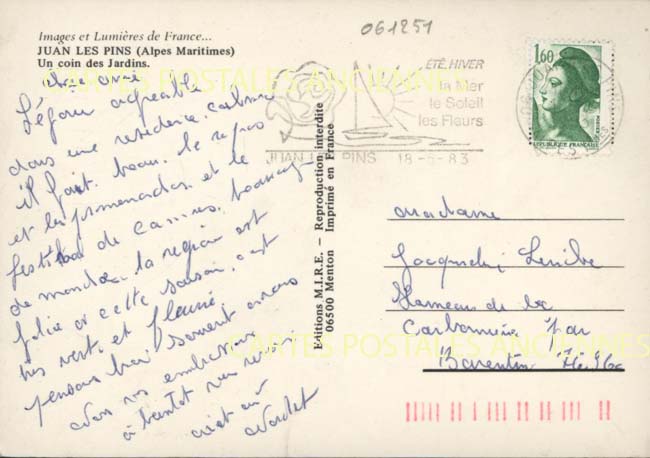 Images et Lumières de France...
JUAN LES PINS (Alpes Maritimes)
Un coin des Jardins.
061251
CARTES POSTALES ANCIENNES
Séjour agréable
dans une résidence calme
il fait beau. le repos
et les promenades et le
festival de cannes. beaucoup
de monde. la région est
jolie a cette saison. c'est
très vert. et fleurie.
pensons bien souvent a vous
vous embrassons
à bientôt
Editions M.I.R.E. — Reproduction interdite
06500 Menton Imprimé en France
ÉTÉ, HIVER
la Mer
le Soleil
les Fleurs
JUAN LES PINS 18-5-83
1,60
REPUBLIQUE FRANÇAISE
Madame
Hameau de la
Carbonnière par
Barentin
CARTES POSTALES ANCIENNES